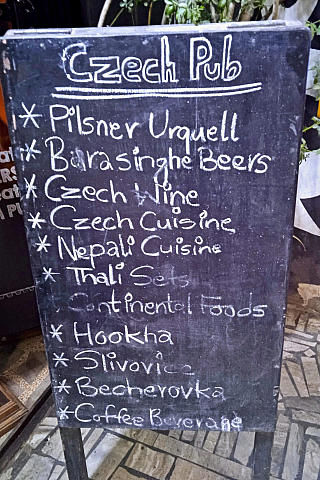 Czech Pub
* Pilsner Urquell
* Barasinghe Beers
* Czech Wine
* Czech Cuisine
* Nepali Cuisine
* Thali Sets
Continental Foods
* Hookha
* Slivovice
* Becherovka
* Coffee Beverage